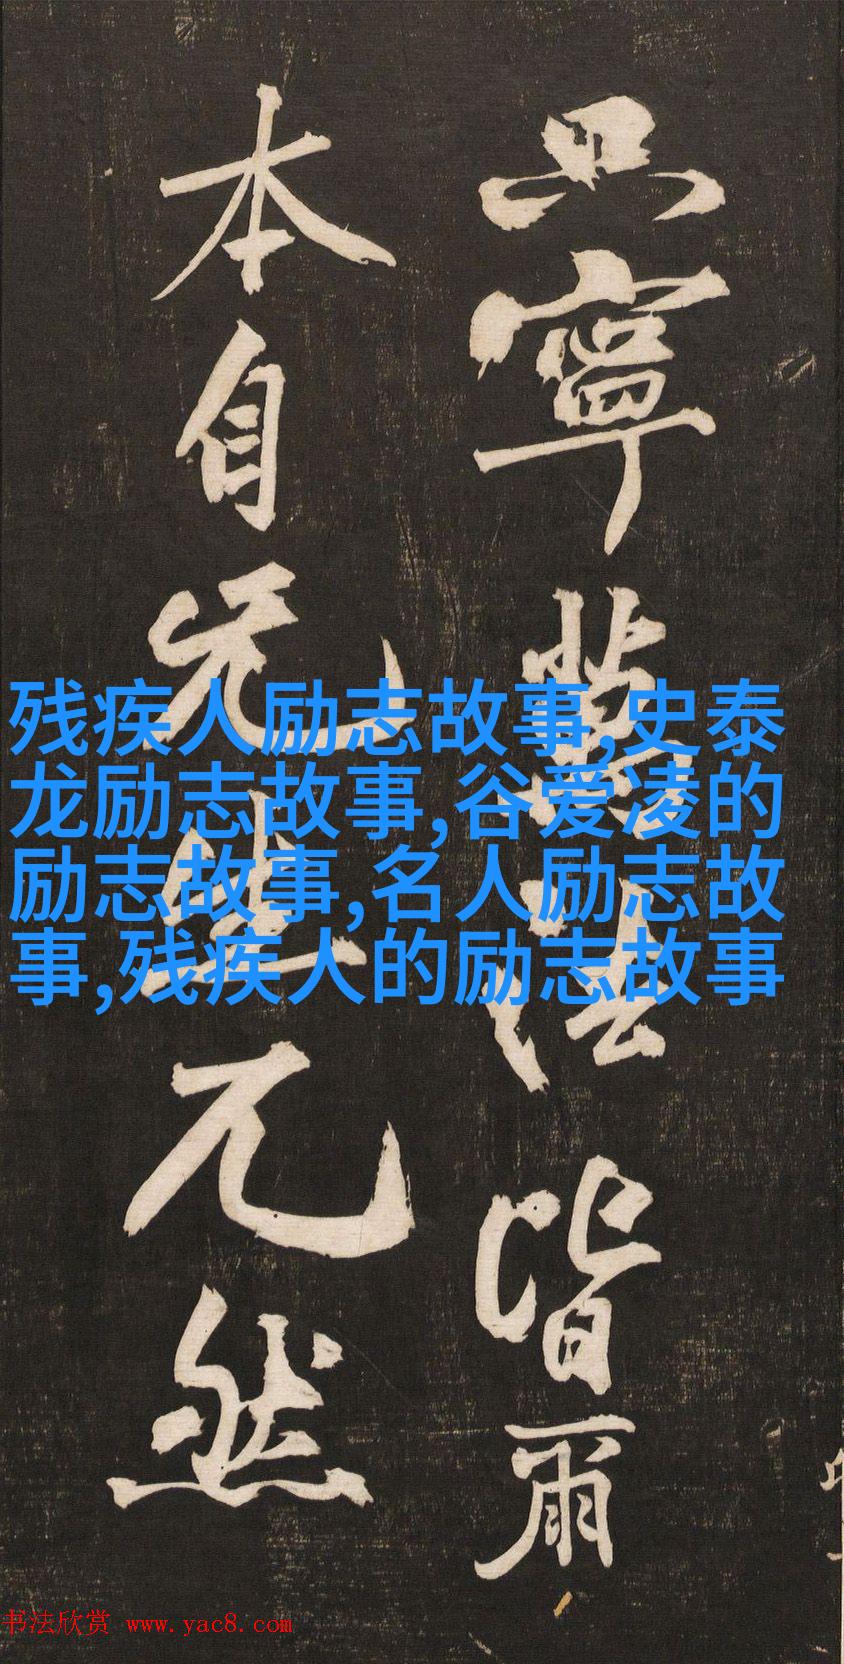 只寧萬法皆爾
本自无兀然
残疾人励志故事,史泰
龙励志故事,谷爱凌的
励志故事,名人励志故
事,残疾人的励志故事
书法欣赏 www.yac8.com